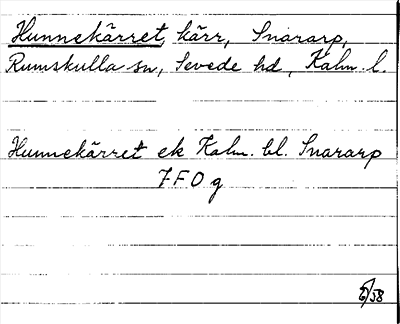 Hunnekärret, kärr, Snararp,
Rumskulla sn, Sevede hd, Kalm. l.
Hunnekärret ek Kalm. bl. Snararp
7 F 0 g
/58